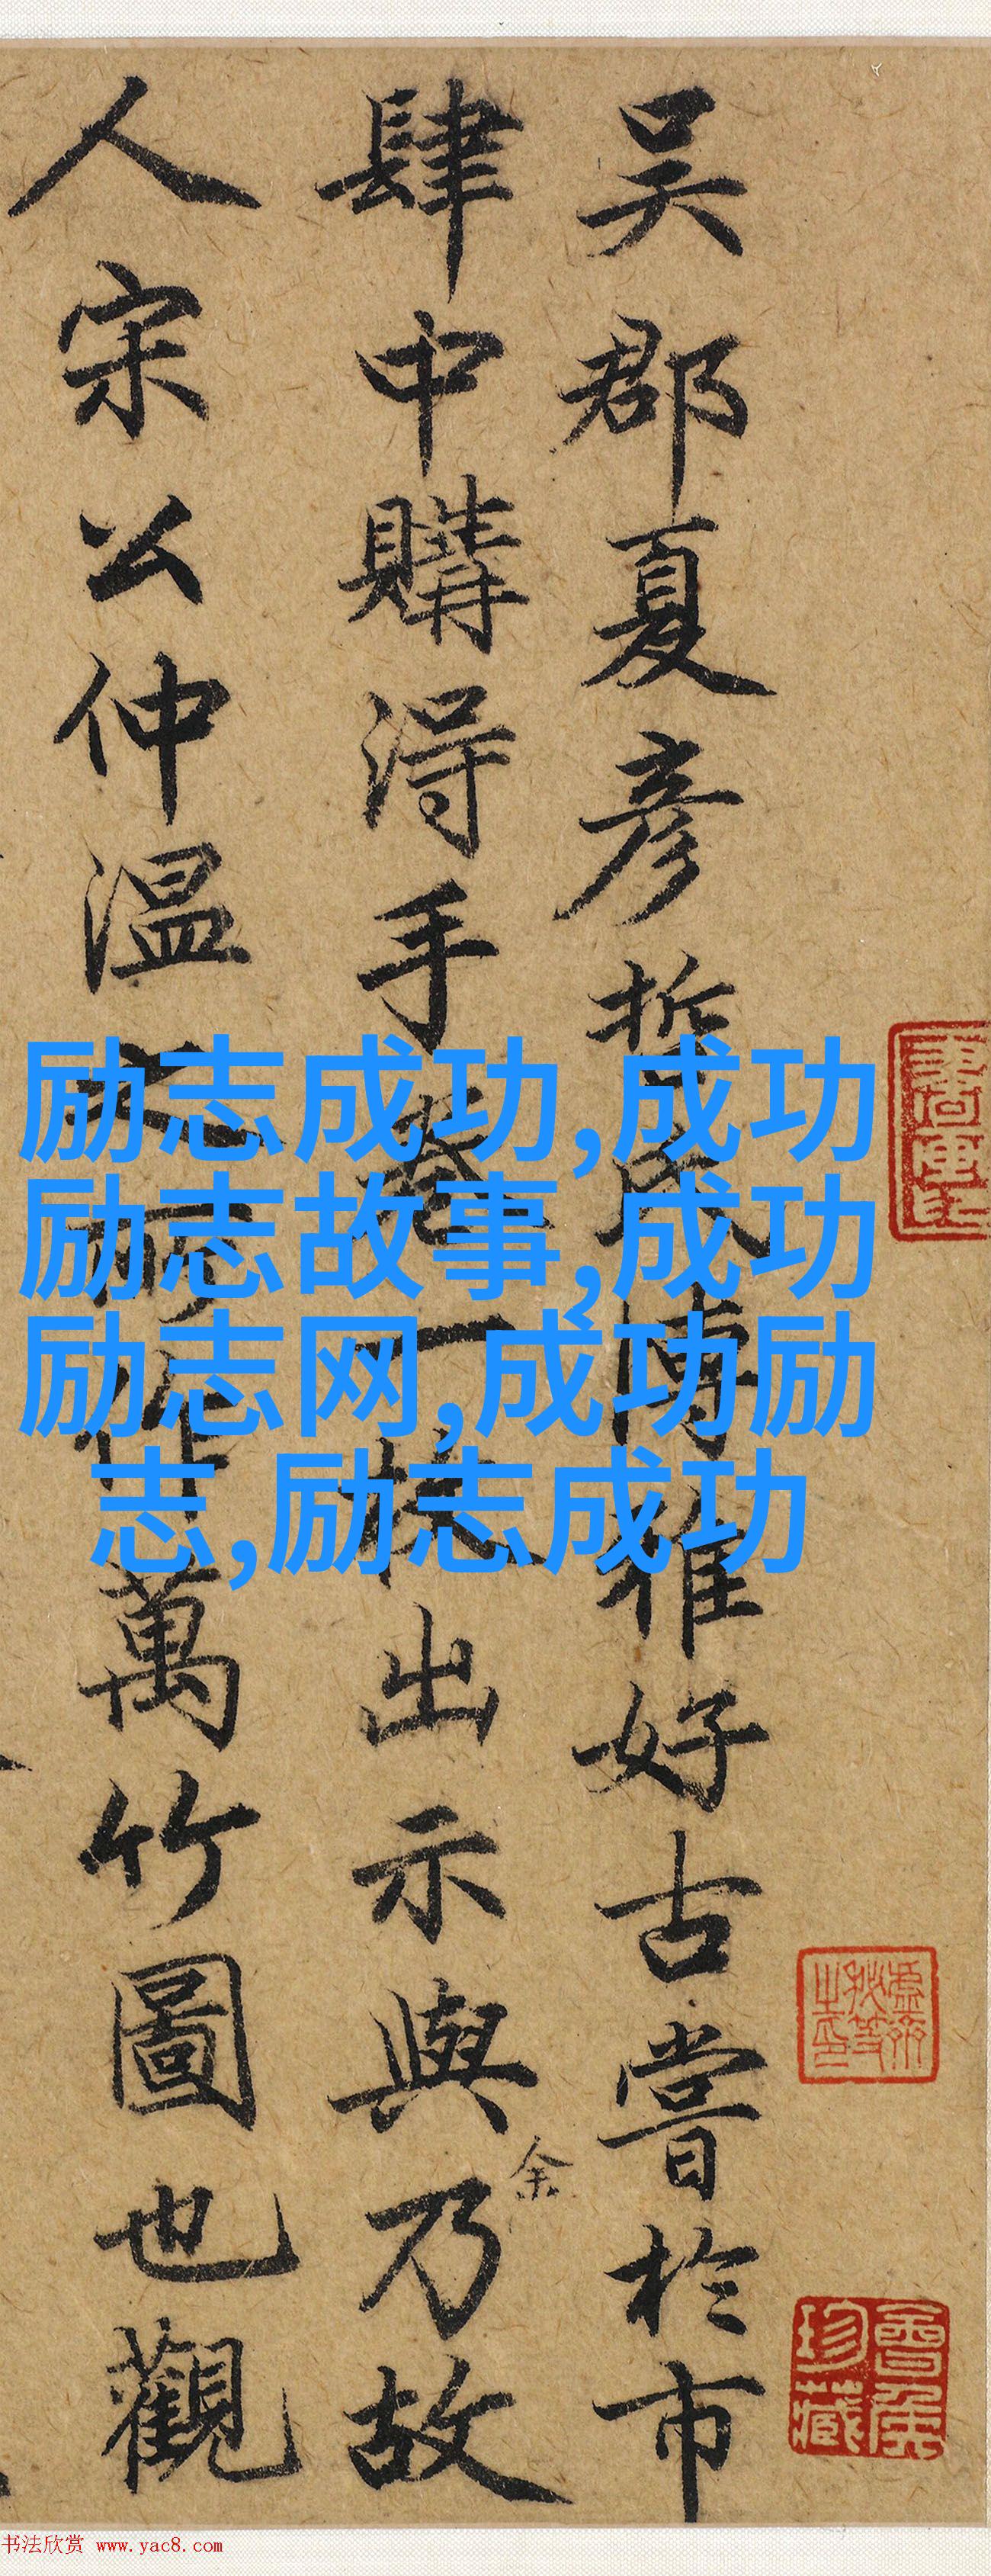 吴郡夏彦哲氏博雅好古嘗於市
肆中購得手卷一枚出示與乃故
余
人宋公仲温之所作萬竹圖也觀
励志成功,成功
励志故事,成功
励志网,成功励
志,励志成功
珍藏
书法欣赏 www.yac8.com